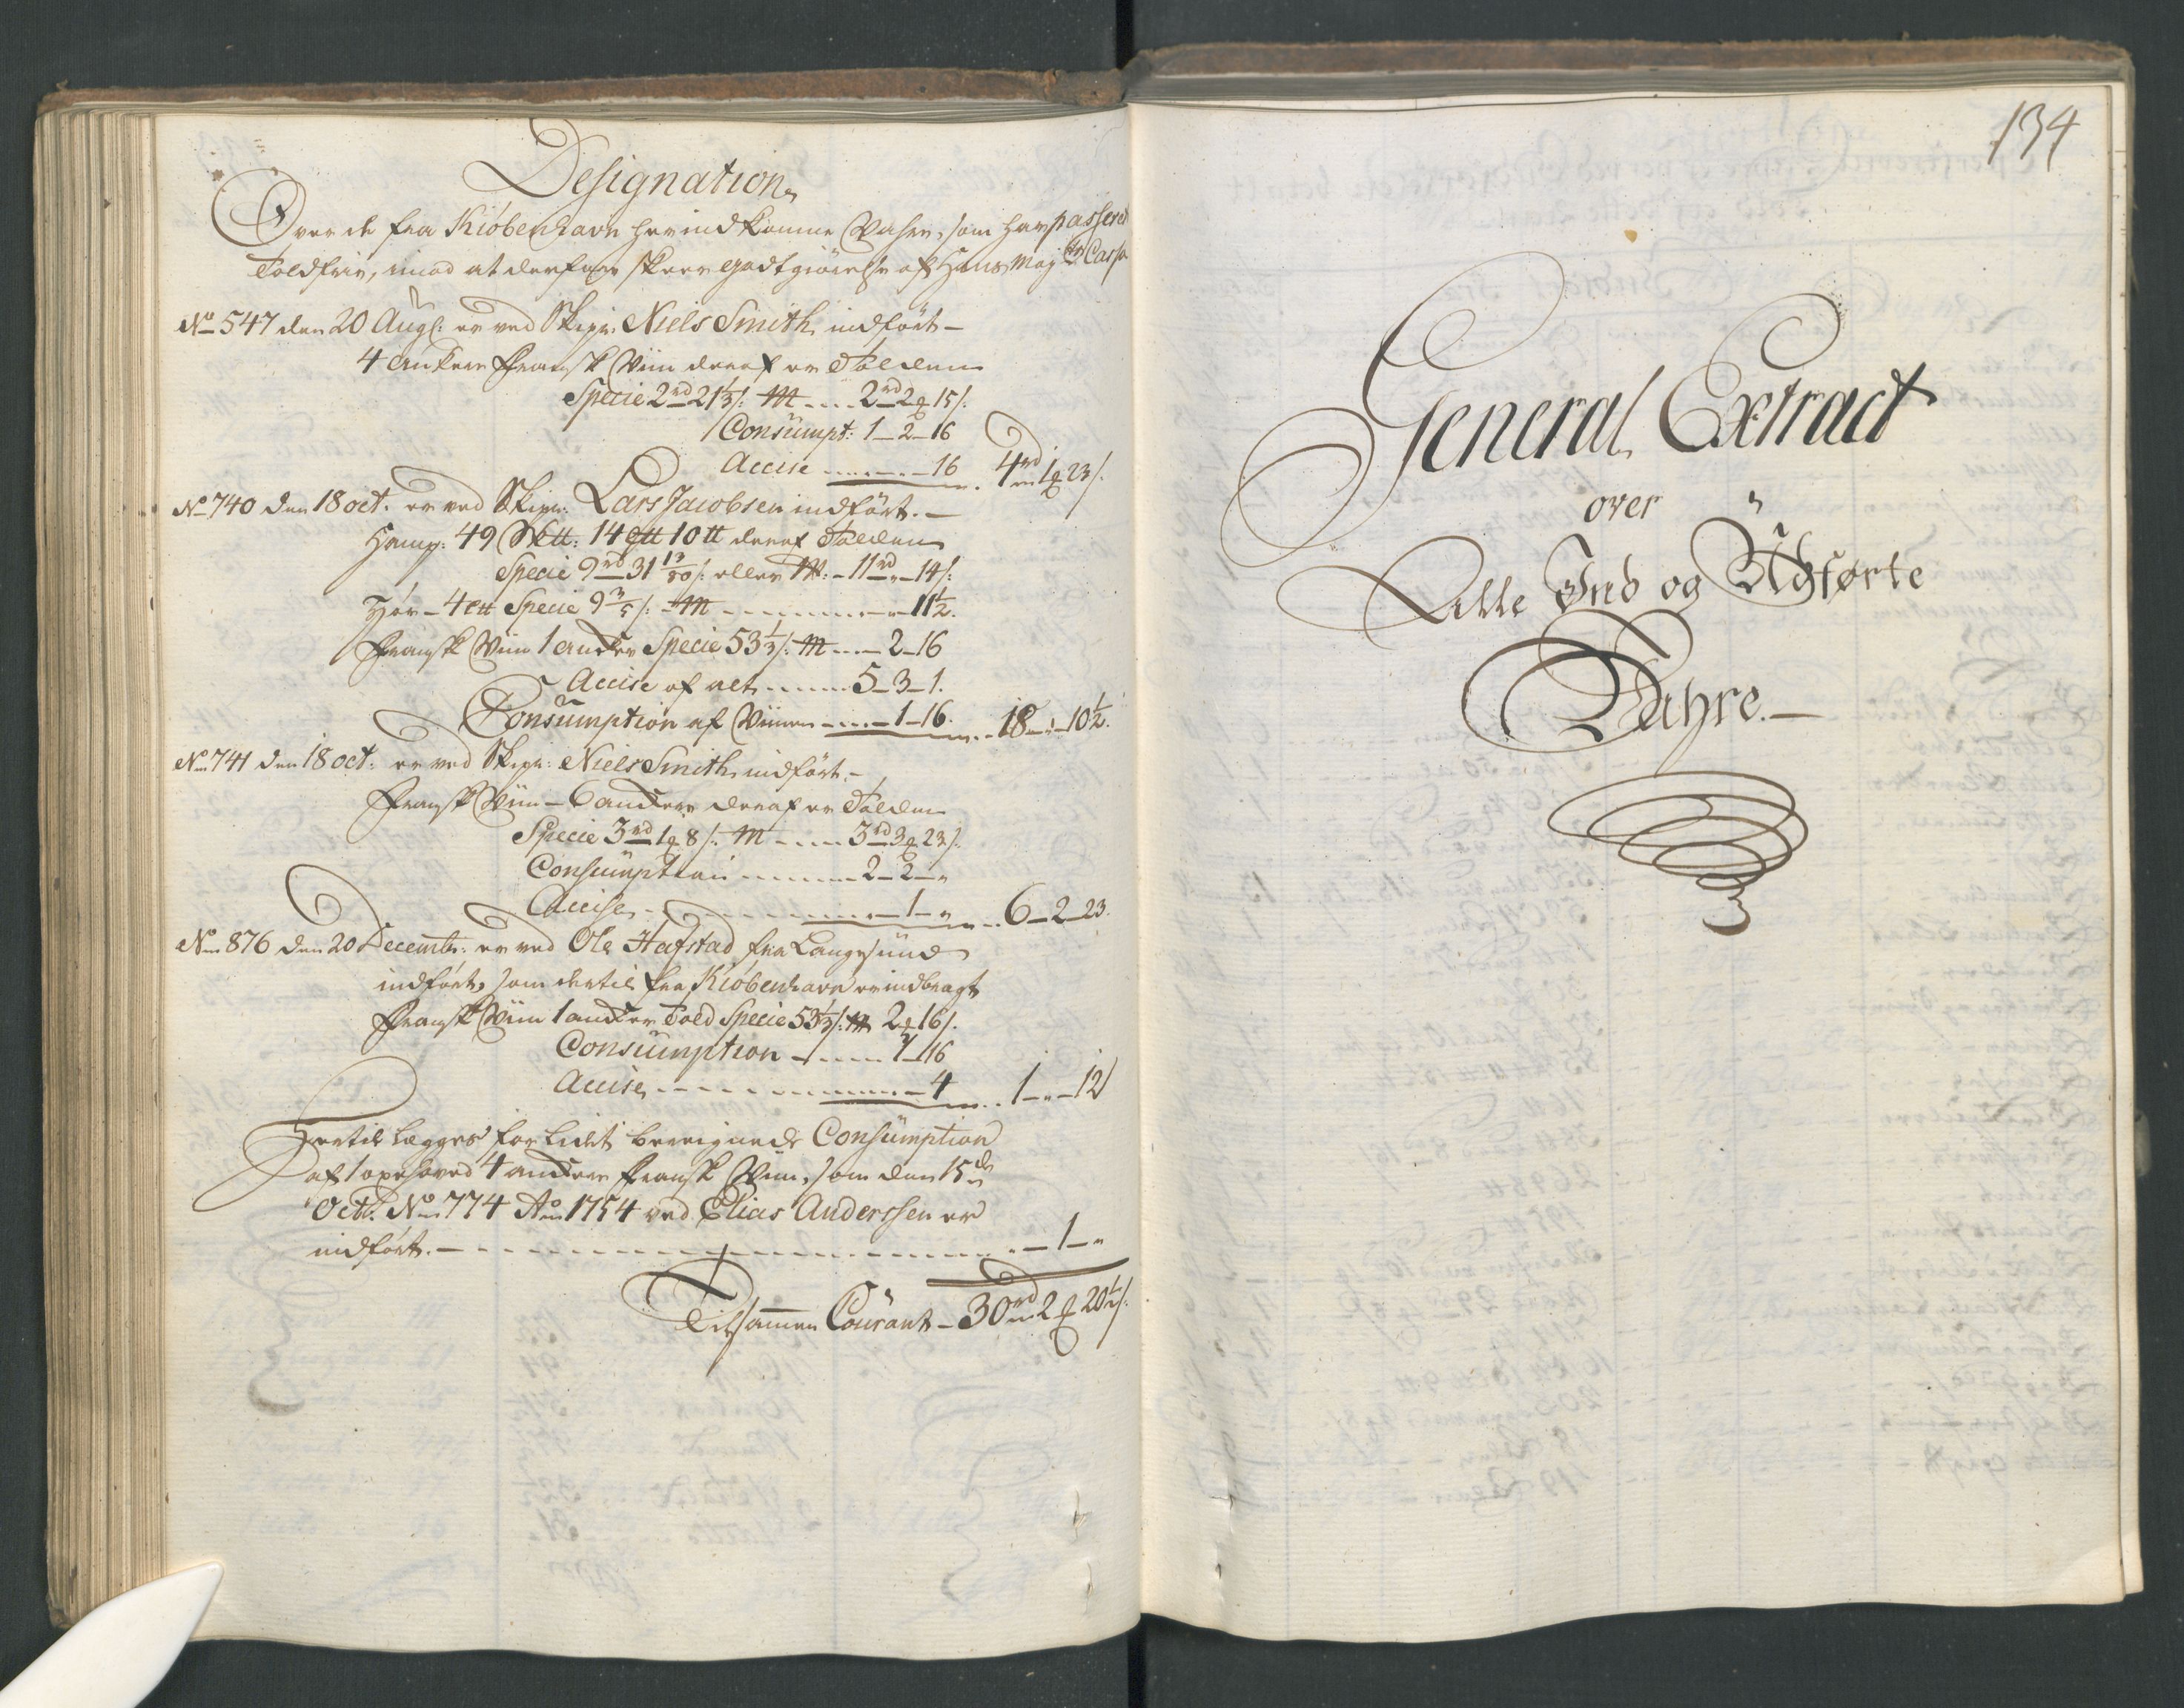 Designation
Over de fra Kiöbenhavn herindkomne Vahre, som har passered
Toldfrie, imod at derfore skeer godtgiörelse af Hans Maj: Cassa
No 547 den 20 Augs: er ved Skipr. Niels Smith indfört -
4 ancker Fransk Viin deraf er Tolden
Specie 2 rd 21 1/3 s: .... 2 rd 2 15 s.
Consumpt: 1 - 2 - 16
Accise ........ - 16 4 rd 1 23 s.
No 740 den 18 oct. er ved Skipr: Lars Jacobsen indfört. -
Hamp: 49 14 10 deraf Tolden
Specie 9 rd 31 13/20 s: eller - 11 rd - 14 s:
Hör - 4 Specie 9 3/5 s: - - - - 11 1/2.
Fransk Viin 1 ancker Specie 53 1/3 s: ... - 2 - 16
Accise af alt ...... 5 - 3 - 1.
Consumption af Viinen .... - 1 - 16. .. 18 - " - 10 1/2.
No 741 den 18 oct: er ved Skipr: Niels Smith indfört -
Fransk Viin - 6 anckere deraf er Tolden
Specie 3 rd 1 8 s: .... 3 rd 3 23 s.
Consumption ...... 2 - 2 - "
Accise ........ - 1 - " .. 6 - 2 - 23.
No 876 den 20 Decembr: er ved Ole Hafstad fra Langesund
indfört, som dertil fra Kiöbenhavn er indbragt
Fransk Viin 1 ancker Told Specie 53 1/3 s: 2 16 s.
Consumption ..... 1 - 16
Accise ........ - 4 .. 1 - " - 12
Hertil lægges for lidet beregnede Consumption
af 1 oxehoved 4 anckere Fransk Viin, som den 15de
Octbr. No 774 Ao 1754 ved Elias Anderssen er
indfört. - - - - - - - - - 1 - "
Tilsammen Courant - 30 rd 2 20 1/2 s.
134
General Extract
over
Alle Ind og Udførte
Vahre. -